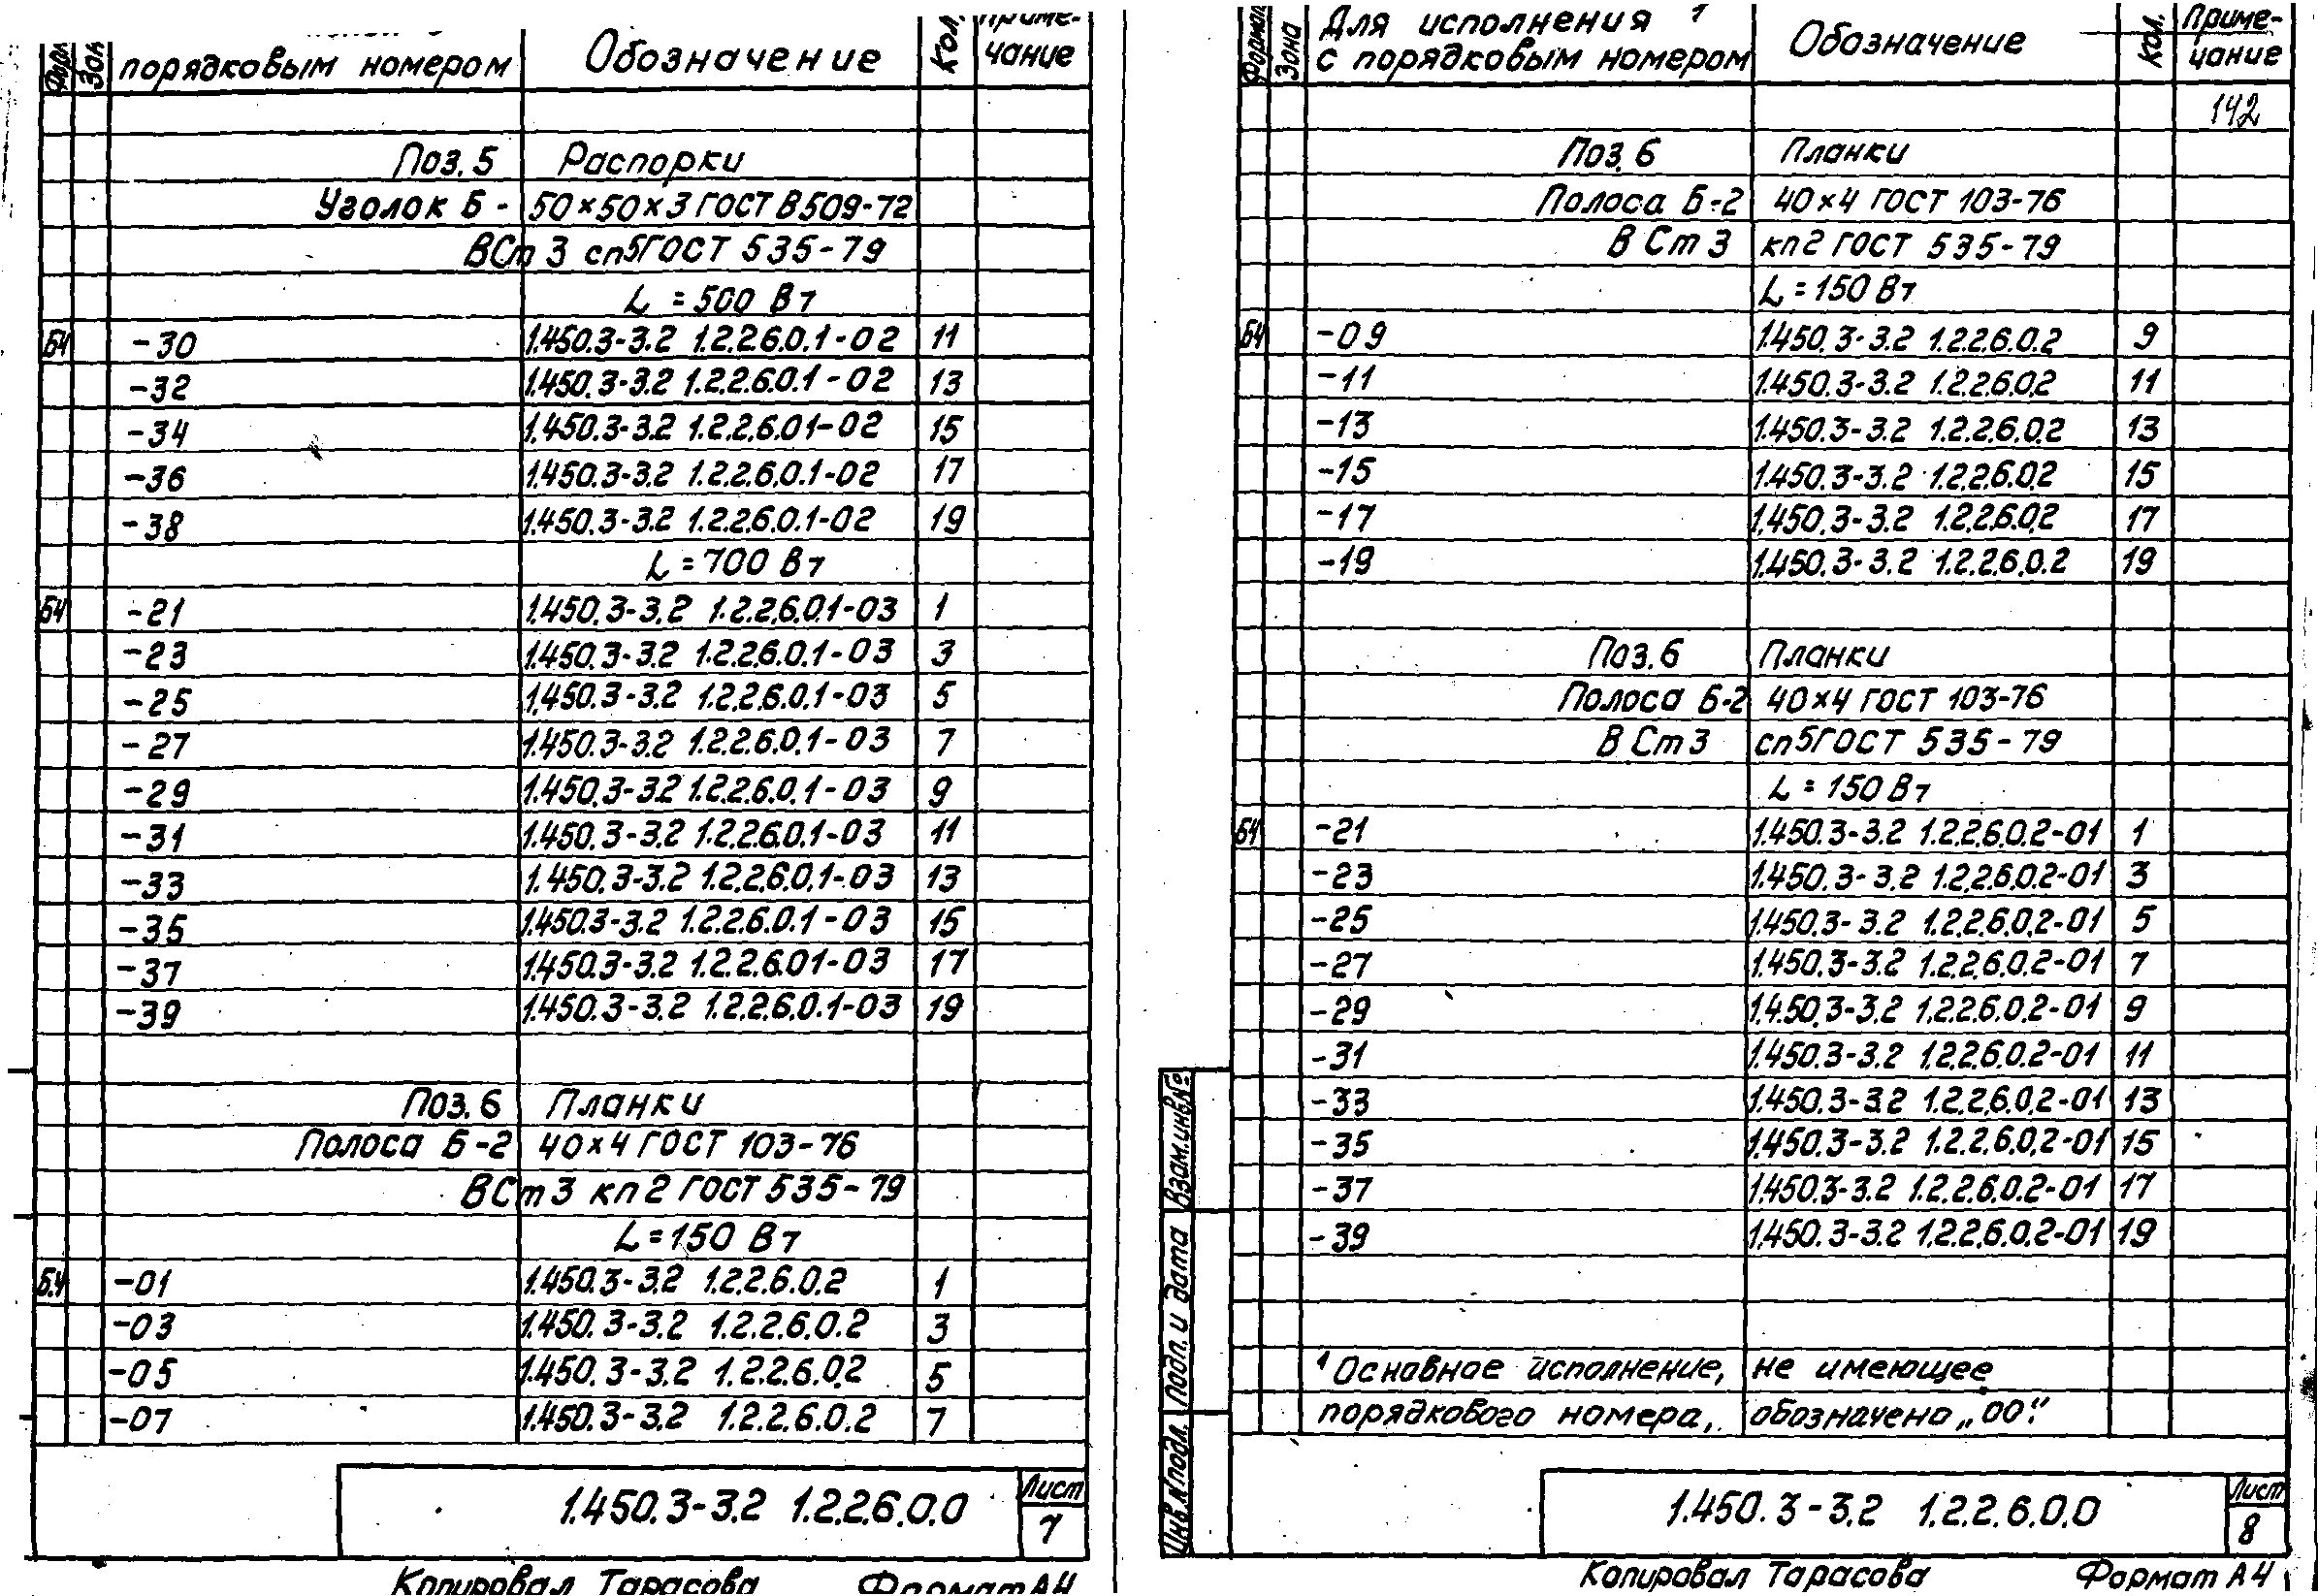 Форм Зон порядковым номером Обозначение Кол. Приме-
чание
Поз. 5 Распорки
Уголок Б - 50×50×3 ГОСТ 8509-72
ВСт 3 сп5 ГОСТ 535-79
L = 500 Вт
БЧ -30 1.450.3-3.2 1.2.2.6.0.1-02 11
-32 1.450.3-3.2 1.2.2.6.0.1-02 13
-34 1.450.3-3.2 1.2.2.6.01-02 15
-36 1.450.3-3.2 1.2.2.6.0.1-02 17
-38 1.450.3-3.2 1.2.2.6.0.1-02 19
L = 700 Вт
БЧ -21 1.450.3-3.2 1.2.2.6.0.1-03 1
-23 1.450.3-3.2 1.2.2.6.0.1-03 3
-25 1.450.3-3.2 1.2.2.6.0.1-03 5
-27 1.450.3-3.2 1.2.2.6.0.1-03 7
-29 1.450.3-3.2 1.2.2.6.0.1-03 9
-31 1.450.3-3.2 1.2.2.6.0.1-03 11
-33 1.450.3-3.2 1.2.2.6.0.1-03 13
-35 1.450.3-3.2 1.2.2.6.0.1-03 15
-37 1.450.3-3.2 1.2.2.6.01-03 17
-39 1.450.3-3.2 1.2.2.6.0.1-03 19
Поз. 6 Планки
Полоса Б-2 40×4 ГОСТ 103-76
ВСт 3 кп 2 ГОСТ 535-79
L = 150 Вт
БЧ -01 1.450.3-3.2 1.2.2.6.0.2 1
-03 1.450.3-3.2 1.2.2.6.0.2 3
-05 1.450.3-3.2 1.2.2.6.0.2 5
-07 1.450.3-3.2 1.2.2.6.0.2 7
1.450.3-3.2 1.2.2.6.0.0 Лист
7
Копировал Тарасова Формат А4
Формат Зона Для исполнения 1
с порядковым номером Обозначение Кол. Приме-
чание
142
Поз. 6 Планки
Полоса Б-2 40×4 ГОСТ 103-76
ВСт 3 кп2 ГОСТ 535-79
L = 150 Вт
БЧ -09 1.450.3-3.2 1.2.2.6.0.2 9
-11 1.450.3-3.2 1.2.2.6.0.2 11
-13 1.450.3-3.2 1.2.2.6.0.2 13
-15 1.450.3-3.2 1.2.2.6.0.2 15
-17 1.450.3-3.2 1.2.2.6.0.2 17
-19 1.450.3-3.2 1.2.2.6.0.2 19
Поз. 6 Планки
Полоса Б-2 40×4 ГОСТ 103-76
ВСт 3 сп5 ГОСТ 535-79
L = 150 Вт
БЧ -21 1.450.3-3.2 1.2.2.6.0.2-01 1
-23 1.450.3-3.2 1.2.2.6.0.2-01 3
-25 1.450.3-3.2 1.2.2.6.0.2-01 5
-27 1.450.3-3.2 1.2.2.6.0.2-01 7
-29 1.450.3-3.2 1.2.2.6.0.2-01 9
-31 1.450.3-3.2 1.2.2.6.0.2-01 11
-33 1.450.3-3.2 1.2.2.6.0.2-01 13
-35 1.450.3-3.2 1.2.2.6.0.2-01 15
-37 1.450.3-3.2 1.2.2.6.0.2-01 17
-39 1.450.3-3.2 1.2.2.6.0.2-01 19
1 Основное исполнение, не имеющее
порядкового номера, обозначено „00".
Взам. инв №
Подп. и дата
Инв. № подл.
1.450.3-3.2 1.2.2.6.0.0 Лист
8
Копировал Тарасова Формат А4